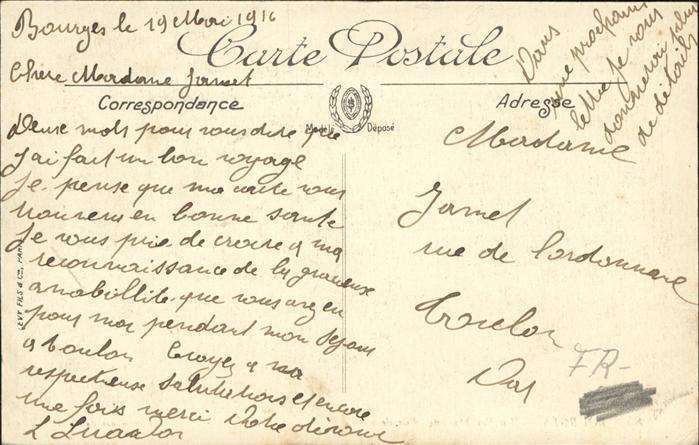 Bourges le 19 Mai 1916
Carte Postale
Chère Madame Jamet
Correspondance
Modèle Déposé
Adresse
Deux mots pour vous dire que
j'ai fait un bon voyage
Je pense que ma carte vous
en bonne santé
Je vous prie de croire a ma
reconnaissance de la gracieuse
amabilité que vous avez eu
pour moi pendant mon sejour
a Toulon Croyez a ma
respectueuse salutations et encore
une fois merci Votre dévoué
L
Madame
Jamet
rue de l'ordonnance
Toulon
Var
Dans
une prochaine
lettre je vous
donnerai plus
de détails
LEVY FILS & Cie, PARIS
FR-